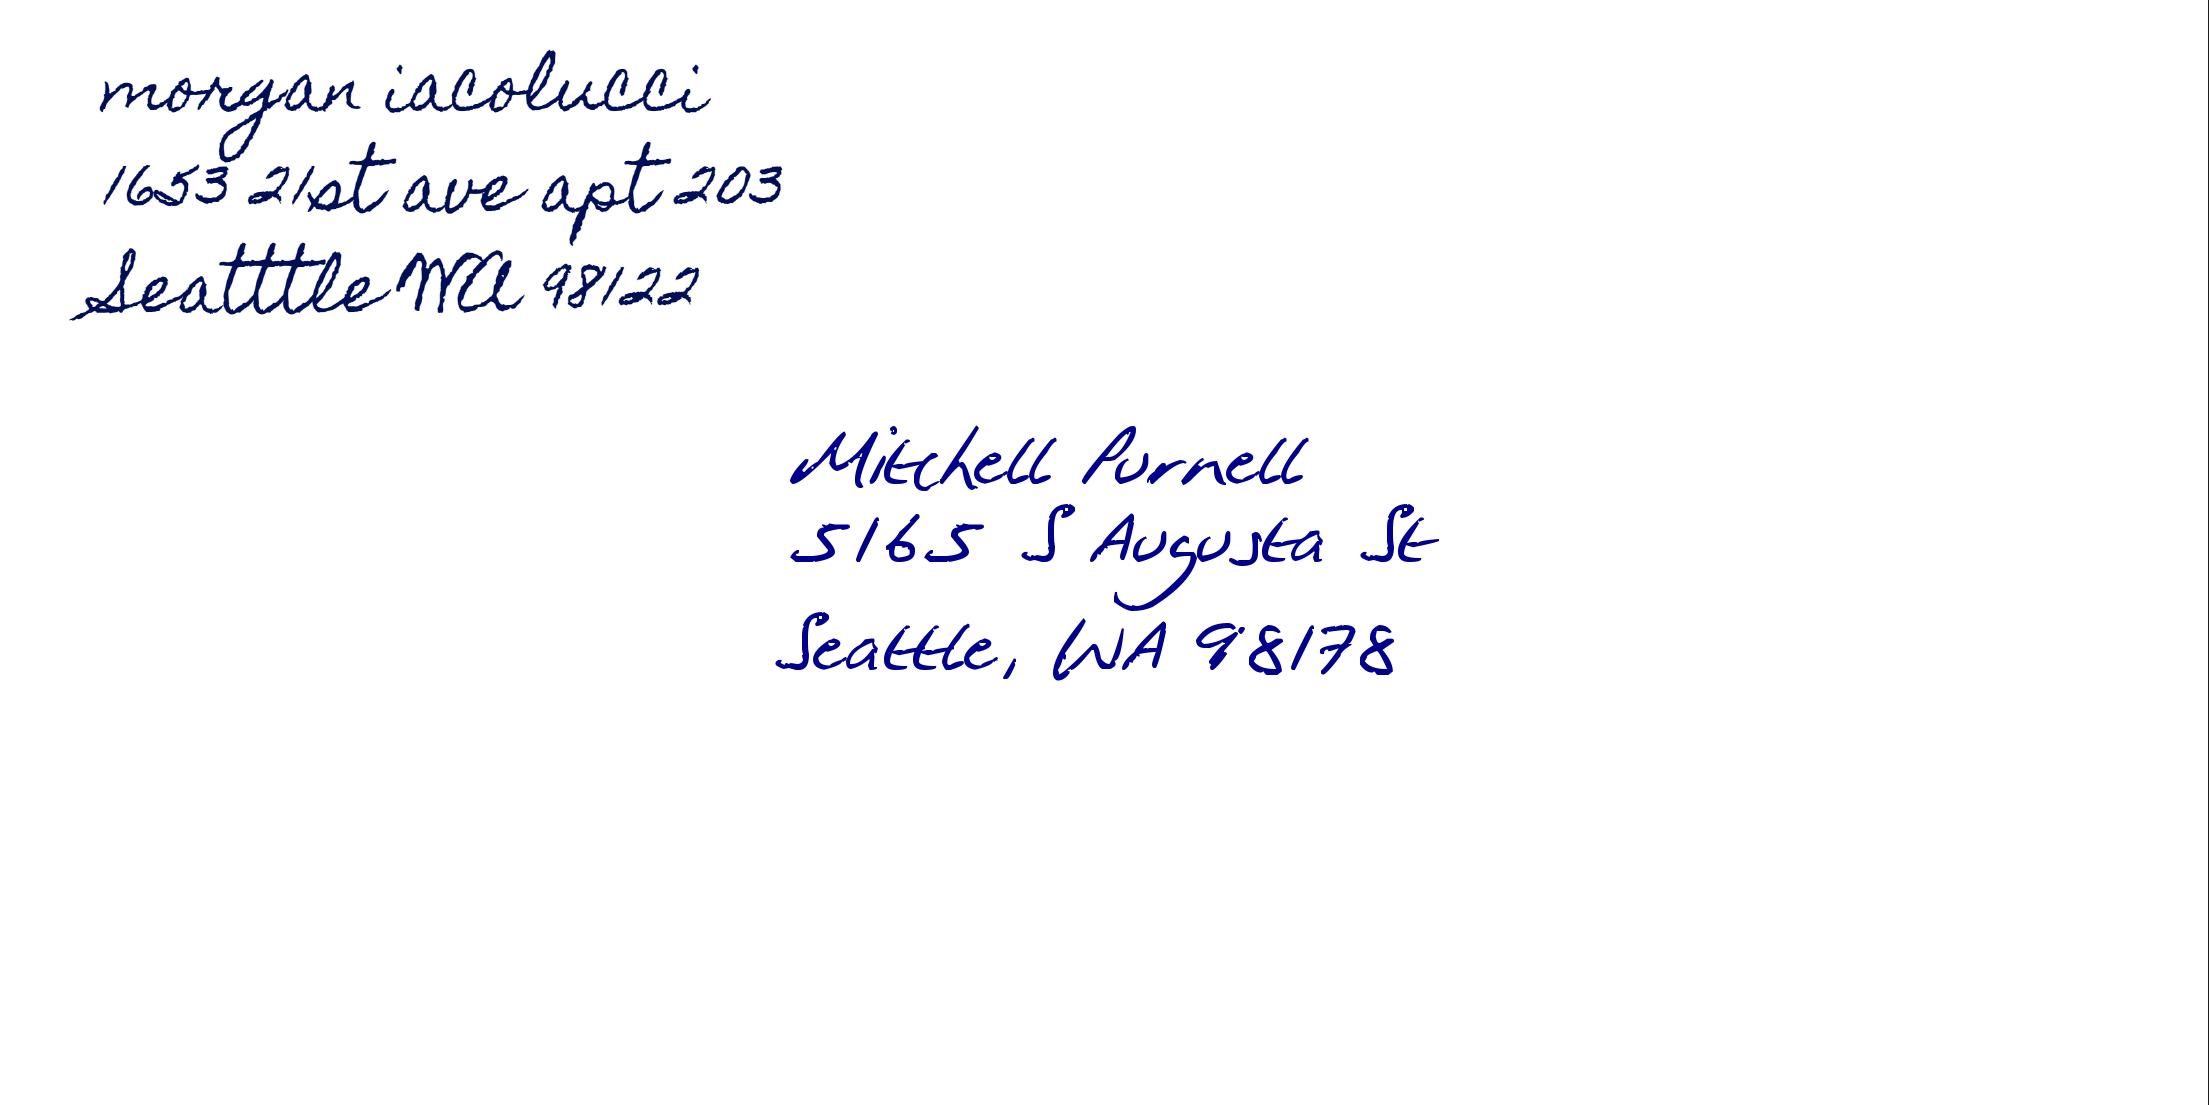 morgan iacolucci
1653 21st ave apt 203
Seatttle WA 98122
Mitchell Purnell
5165 S Augusta St
Seattle, WA 98178